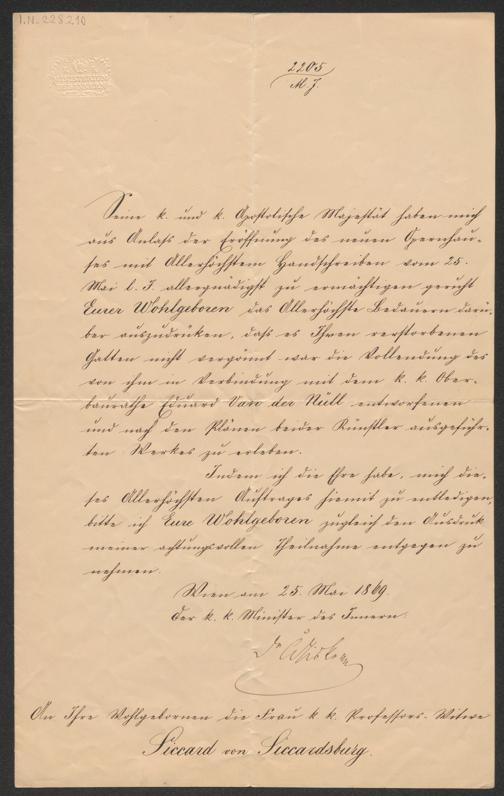 I.N. 228210
2205
M. J.
Seine k. und k. Apostolische Majestät haben mich
aus Anlaß der Eröffnung des neuen Opernhau-
ses mit Allerhöchstem Handschreiben vom 25.
Mai l. J. allergnädigst zu ermächtigen geruht
Eurer Wohlgeboren das Allerhöchste Bedauern darü-
ber auszudrücken, daß es Ihrem verstorbenen
Gatten nicht vergönnt war die Vollendung des
von ihm in Verbindung mit dem k. k. Ober-
baurathe Eduard Van der Nüll entworfenen
und nach den Plänen beider Künstler ausgeführ-
ten Werkes zu erleben.
Indem ich die Ehre habe, mich die-
ses Allerhöchsten Auftrages hiemit zu entledigen,
bitte ich Eure Wohlgeboren zugleich den Ausdruck
meiner achtungsvollen Theilnahme entgegen zu
nehmen.
Wien am 25. Mai 1869.
Der k. k. Minister des Innern.
Dr Giskra
An Ihre Wohlgebornen die Frau k. k. Professors-Witwe
Siccard von Siccardsburg.